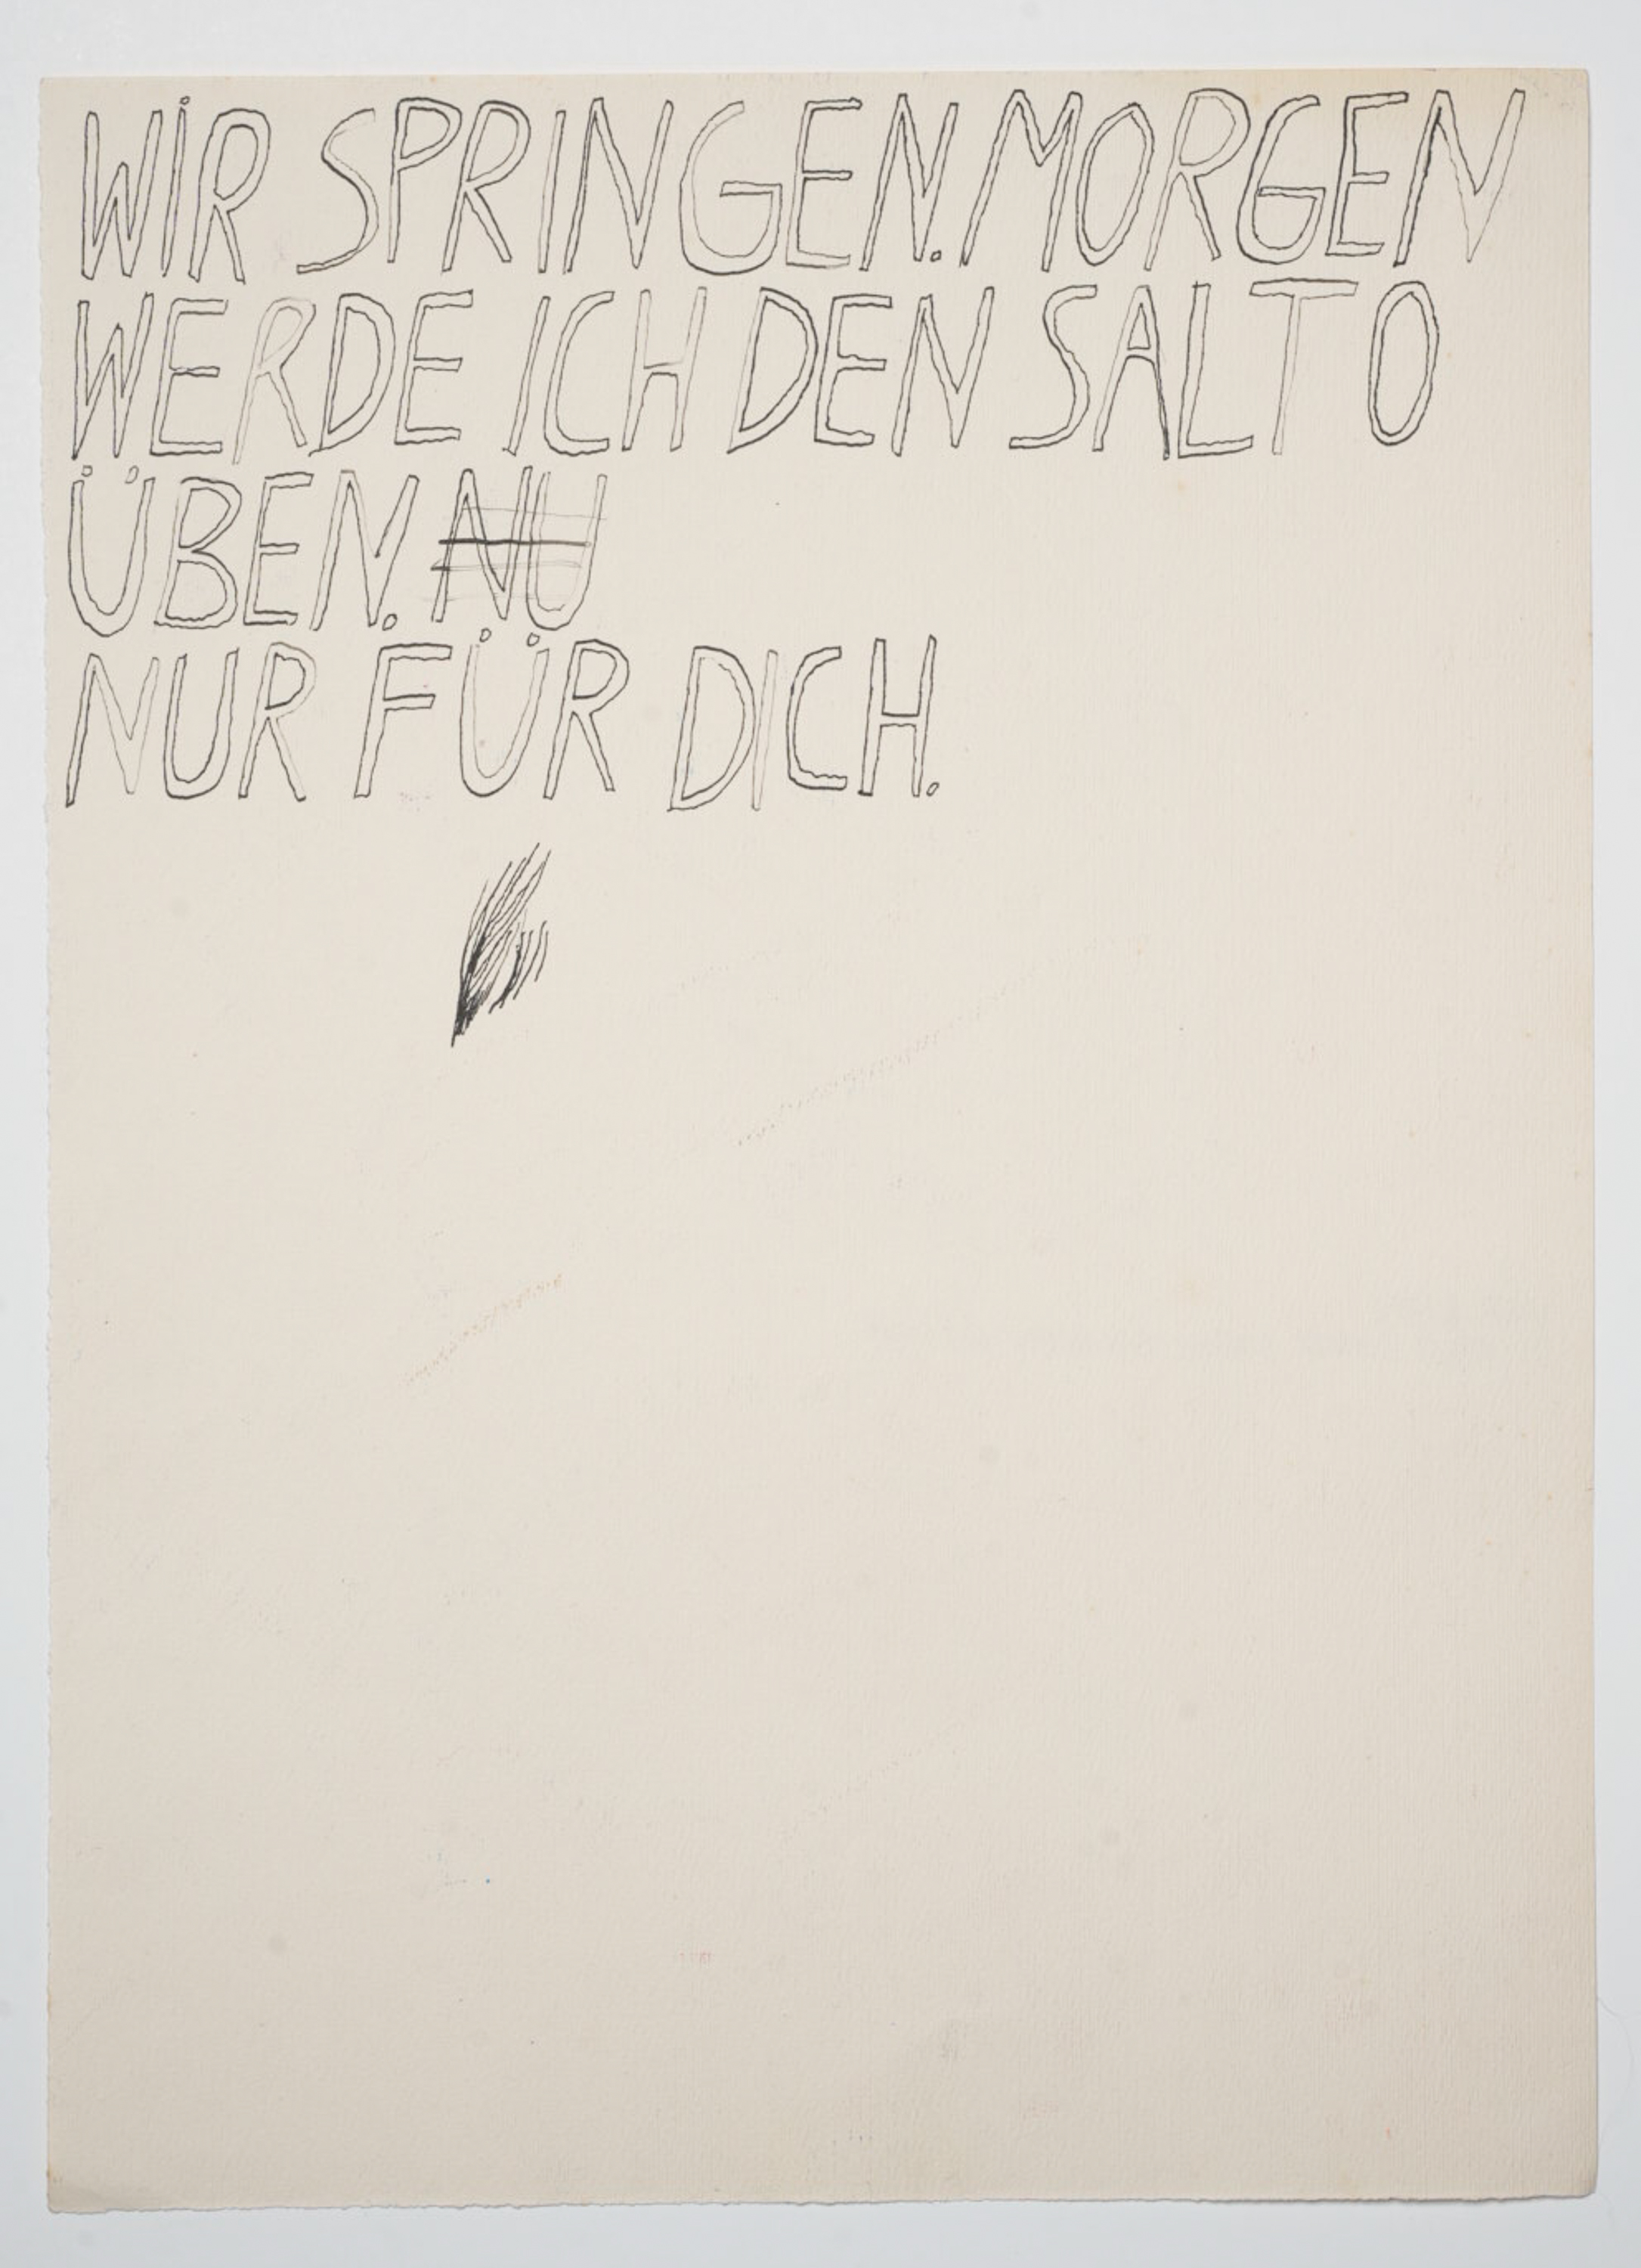 WIR SPRINGEN. MORGEN
WERDE ICH DEN SALTO
ÜBEN. NU
NUR FÜR DICH.